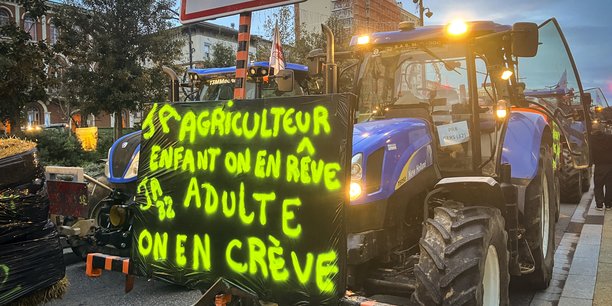 AGRICULTEUR
ENFANT ON EN RÊVE
82 ADULTE
ON EN CRÈVE